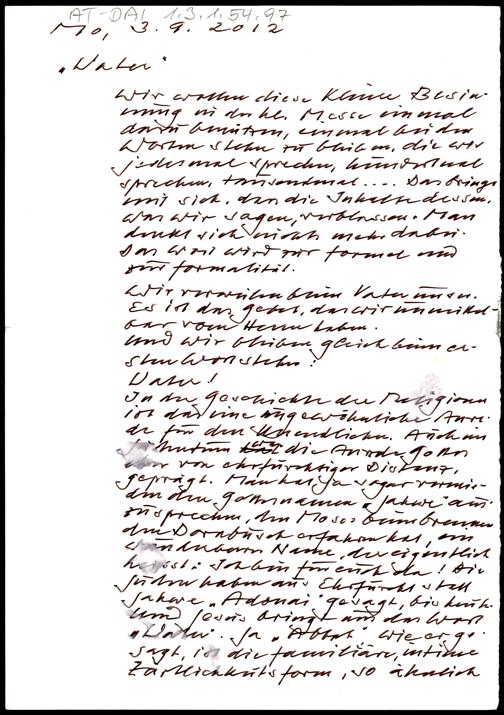 AT-DAI 1.3.1.54.97
Mo, 3. 9. 2012
„Vater"
Wir wollen diese kleine Besin-
nung in der hl. Messe einmal
dazu benützen, einmal bei den
Worten stehn zu bleiben, die wir
jedesmal sprechen, hundertmal
sprechen, tausendmal.... Das bringt
mit sich, dass die Inhalte dessen,
was wir sagen, verblassen. Man
denkt sich nichts mehr dabei.
Das Wort wird zur Formel und
zur Formalität.
Wir verweilen beim Vater unser.
Es ist das Gebet, das wir unmittel-
bar vom Herrn haben.
Und wir bleiben gleich beim er-
sten Wort stehn:
Vater!
In der Geschichte der Religionen
ist das eine ungewöhnliche Anre-
de für den Unendlichen. Auch im
Judentum war die Anrede Gottes
eher von ehrfürchtiger Distanz
geprägt. Man hat ja sogar vermie-
den den Gottesnamen „Jahwe" aus-
zusprechen, den Moses beim brennen-
den Dornbusch erfahren hat, ein
wunderbarer Name, der eigentlich
heisst: Ich bin für euch da! Die
Juden haben aus Ehrfurcht statt
Jahwe „Adonai" gesagt, bis heute.
Und Jesus bringt nun das Wort
„Vater". Ja „Abba", wie er ge-
sagt, ist die familiäre, intime
Zärtlichkeitsform, so ähnlich